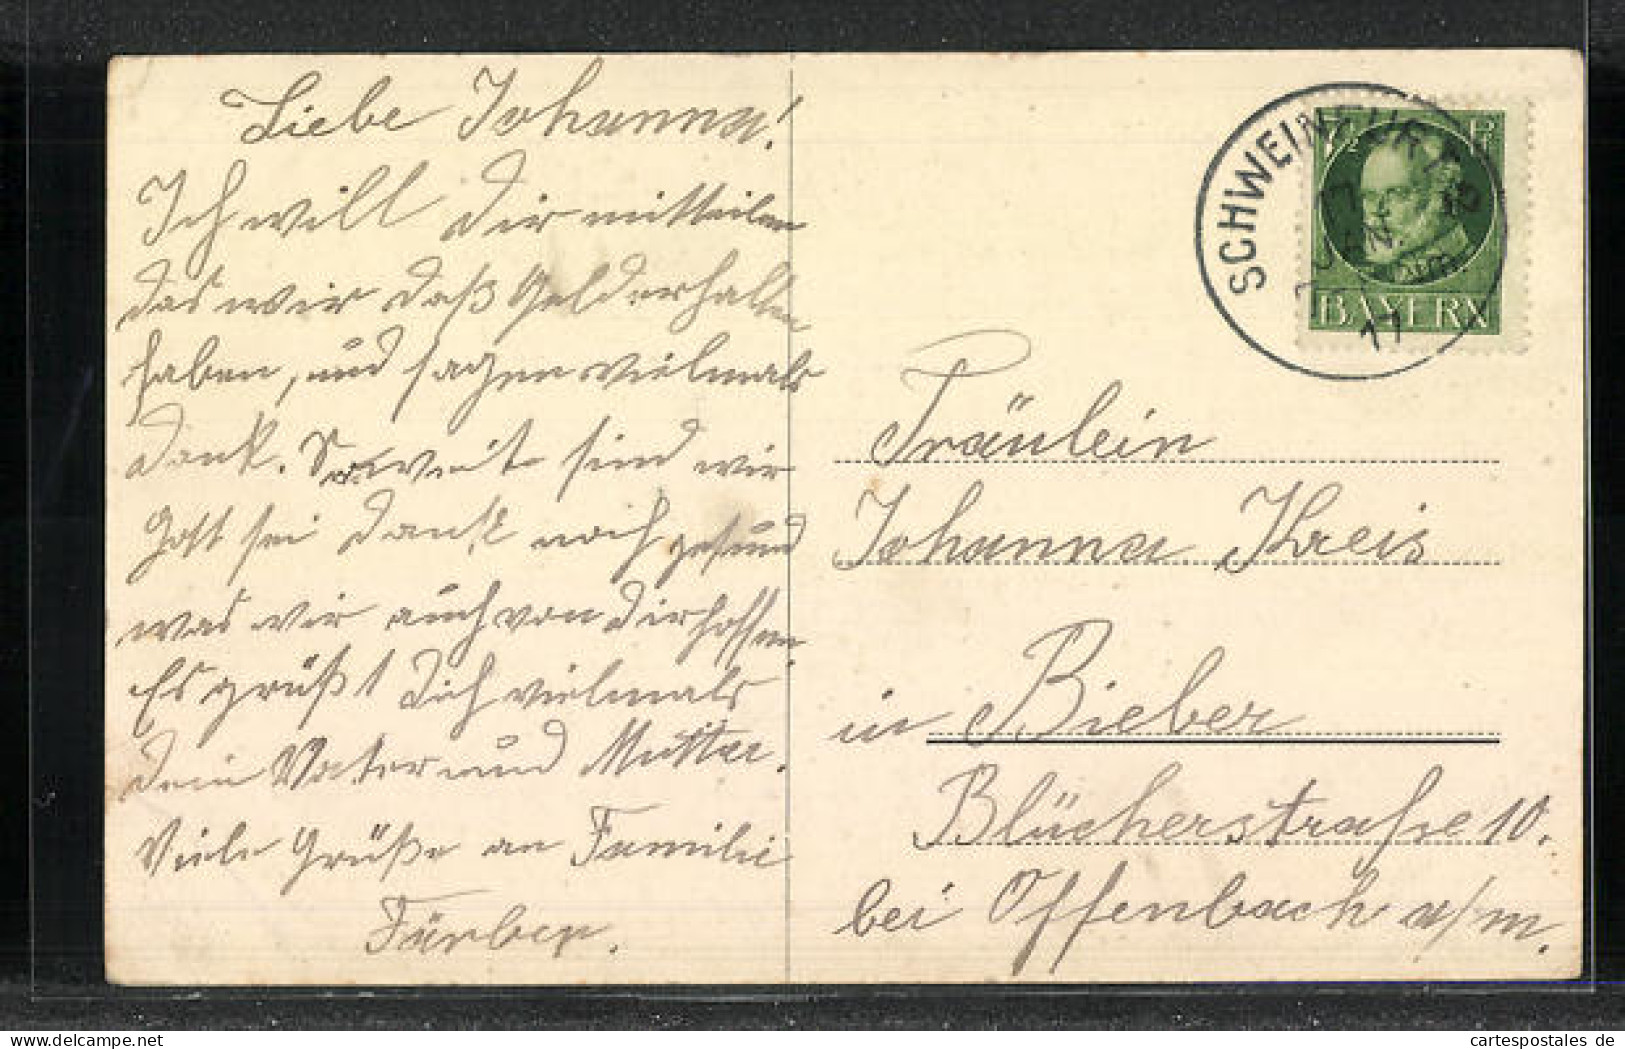 Liebe Johanna!
Ich will Dir mitteilen
das wir daß Geld erhalten
haben, und sagen vielmals
Dank. Soweit sind wir
Gott sei Dank noch gesund
was wir auch von Dir hoffen.
Es grüßt Dich vielmals
Dein Vater und Mutter.
Viele Grüße an Familie
Färber.
SCHWEINFURT
7 JAN.
17
7½ P
BAYERN
Fräulein
Johanna Kreis
in Bieber
Blücherstraße 10.
bei Offenbach a/m.
www.cartespostales.de